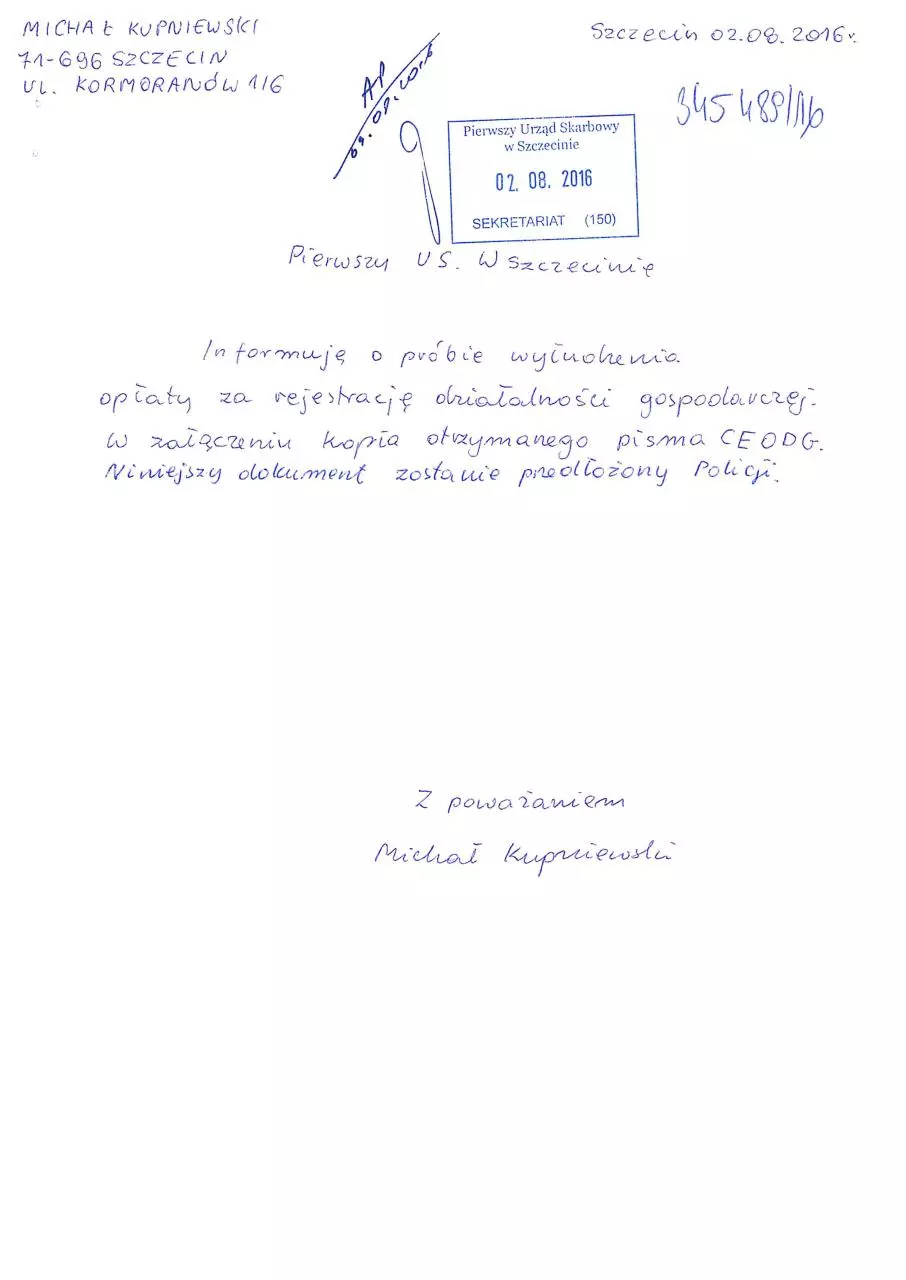 MICHAŁ KUPNIEWSKI
71-696 SZCZECIN
UL. KORMORANÓW 1/6
Szczecin 02.08.2016r.
AP
09.08.2016
345 489/16
Pierwszy Urząd Skarbowy
w Szczecinie
02. 08. 2016
SEKRETARIAT (150)
Pierwszy US. W Szczecinie
Informuję o próbie wyłudzenia
opłaty za rejestrację działalności gospodarczej.
W załączeniu kopia otrzymanego pisma CEODG.
Niniejszy dokument zostanie przedłożony Policji.
Z poważaniem
Michał Kupniewski